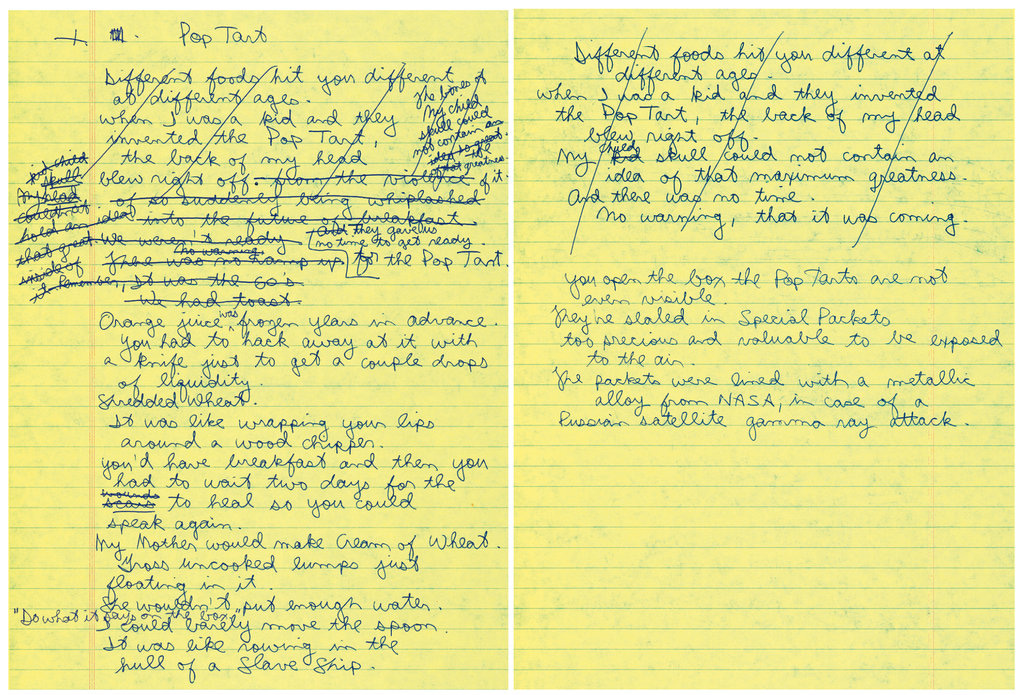 Pop Tart
Different foods hit you different
at different ages.
When I was a kid and they
invented the Pop Tart,
the back of my head
blew right off. from the violence of it.
of so suddenly being whiplashed
into the future of breakfast
We weren't ready
And they gave us
no time to get ready
no warning
There was no ramp up. for the Pop Tart.
It was the 60's
We had toast.
The bones of
My child
skull could
not contain an
idea so great.
that greatness.
child
skull
My head
could not
hold an
idea
that great
inside of
it
I remember,
Orange juice was frozen years in advance.
You had to hack away at it with
a knife just to get a couple drops
of liquidity.
Shredded Wheat.
It was like wrapping your lips
around a wood chipper.
You'd have breakfast and then you
had to wait two days for the
wounds
scars to heal so you could
speak again.
My Mother would make Cream of Wheat.
Gross uncooked lumps just
floating in it.
She wouldn't put enough water.
"Do what it says on the box."
I could barely move the spoon.
It was like rowing in the
hull of a Slave Ship.
Different foods hit you different at
different ages.
When I was a kid and they invented
the Pop Tart, the back of my head
blew right off.
child
My kid skull could not contain an
idea of that maximum greatness.
And there was no time.
No warning, that it was coming.
you open the box the Pop Tarts are not
even visible.
They're sealed in Special Packets
too precious and valuable to be exposed
to the air.
The packets were lined with a metallic
alloy from NASA, in case of a
Russian satellite gamma ray attack.